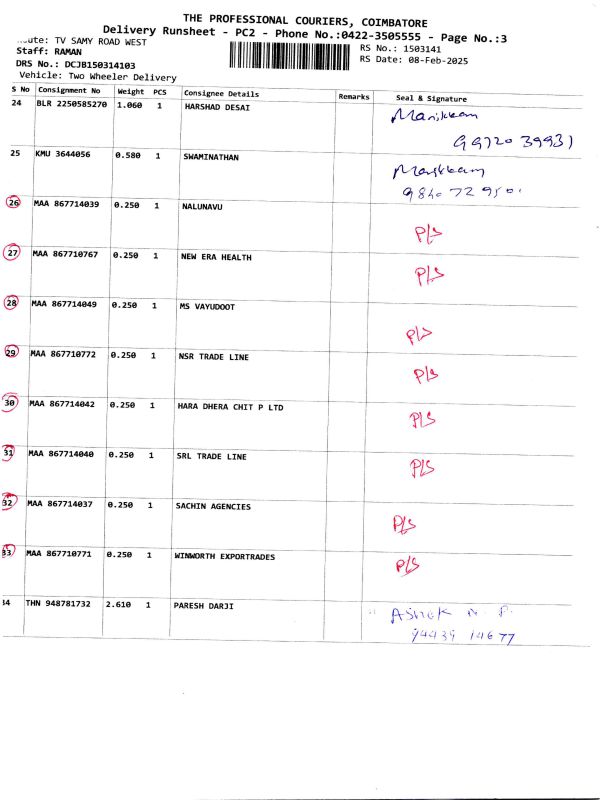 THE PROFESSIONAL COURIERS, COIMBATORE
Delivery Runsheet - PC2 - Phone No.:0422-3505555 - Page No.:3
TV SAMY ROAD WEST
RS No.: 1503141
Staff: RAMAN
RS Date: 08-Feb-2025
DRS No.: DCJB150314103
Vehicle: Two Wheeler Delivery
S No Consignment No Weight PCS Consignee Details Remarks Seal & Signature
24 BLR 2250585270 1.060 1 HARSHAD DESAI Manikkam
99720 39931
25 KMU 3644056 0.580 1 SWAMINATHAN Manikkam
26 MAA 867714039 0.250 1 NALUNAVU P/S
27 MAA 867710767 0.250 1 NEW ERA HEALTH P/S
28 MAA 867714049 0.250 1 MS VAYUDOOT P/S
29 MAA 867710772 0.250 1 NSR TRADE LINE P/S
30 MAA 867714042 0.250 1 HARA DHERA CHIT P LTD P/S
31 MAA 867714040 0.250 1 SRL TRADE LINE P/S
32 MAA 867714037 0.250 1 SACHIN AGENCIES P/S
33 MAA 867710771 0.250 1 WINWORTH EXPORTRADES P/S
34 THN 948781732 2.610 1 PARESH DARJI
94439 14677